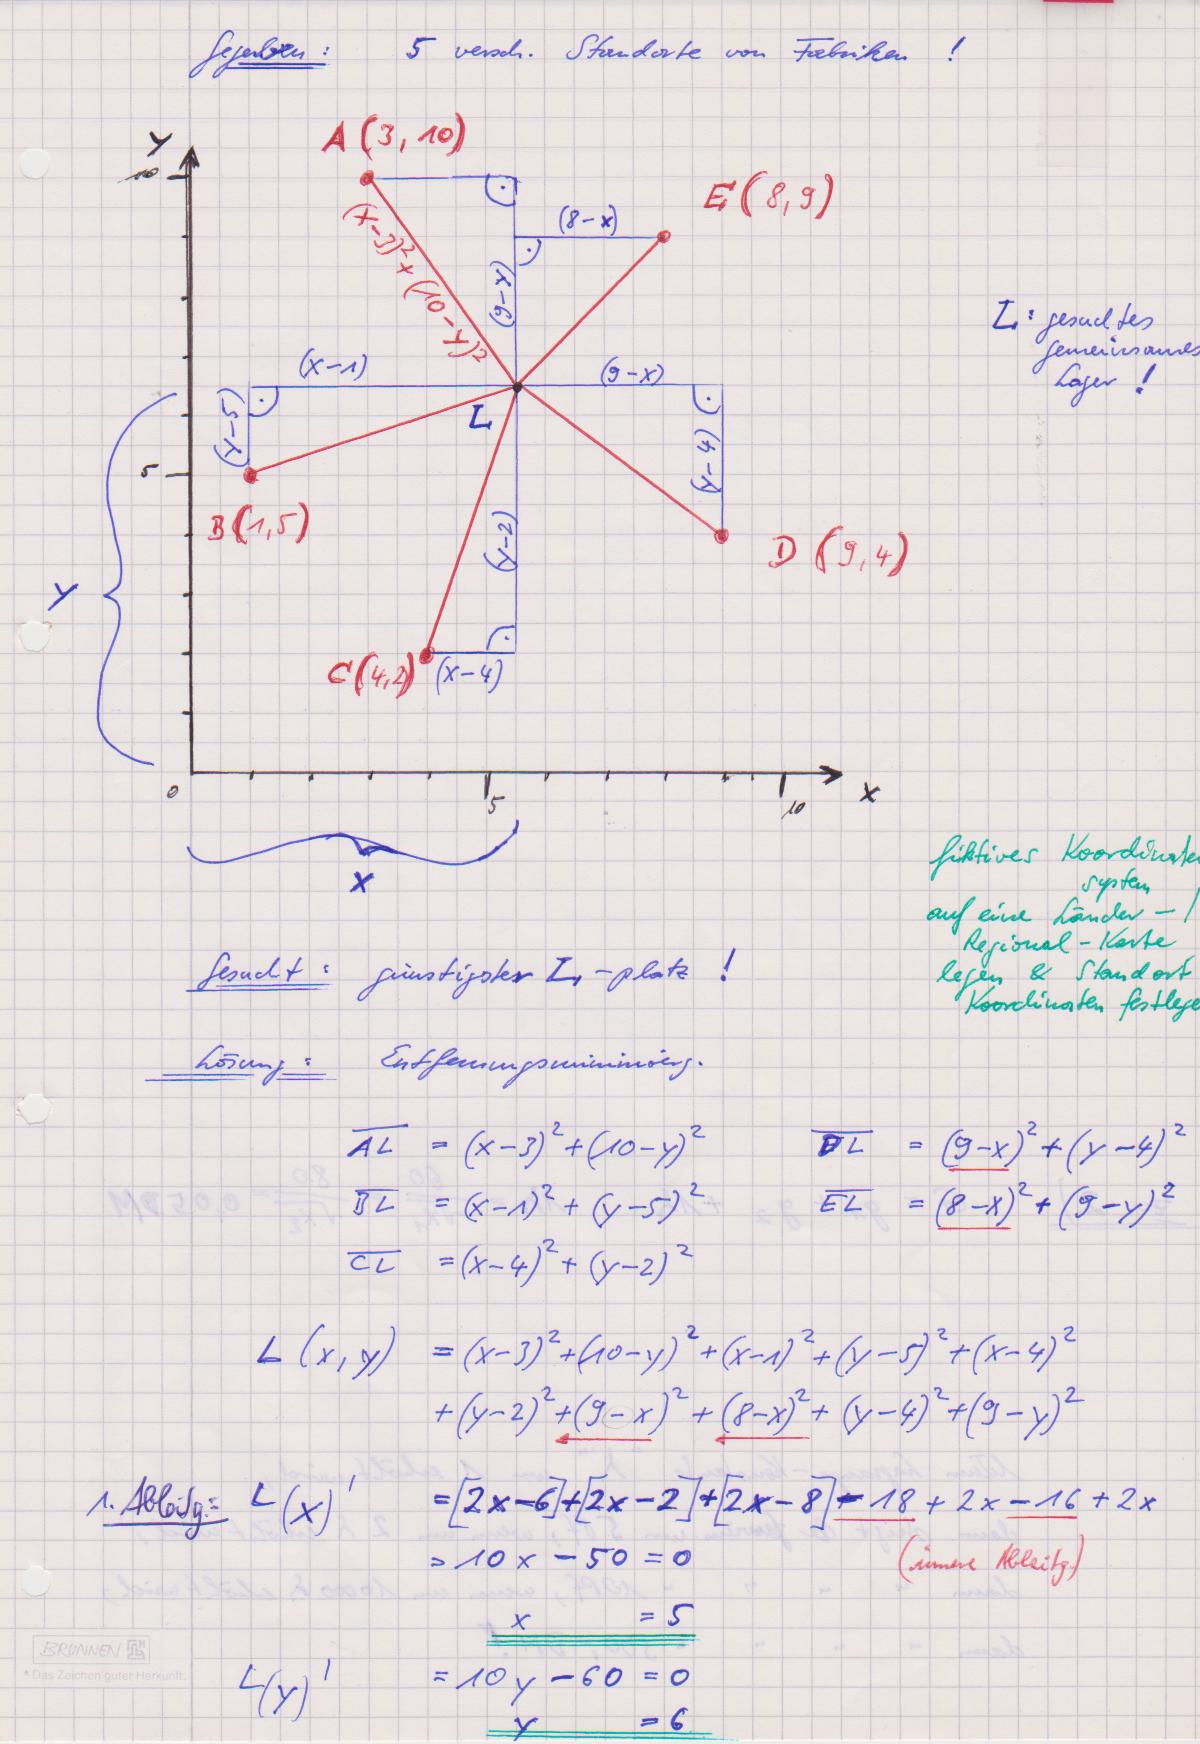 Gegeben: 5 versch. Standorte von Fabriken !
A (3, 10)
Y
10
E (8, 9)
(8-x)
(x-3)²+(10-y)²
(9-x)
L: gesuchtes
gemeinsames
Lager !
(x-1)
(9-x)
(y-5)
L
(y-4)
5
B (1,5)
(y-2)
D (9,4)
Y
C (4,2)
(x-4)
0
5
10
x
x
fiktives Koordinaten
system
auf eine Länder - /
Regional-Karte
legen & Standort
Koordinaten festlege
Gesucht: günstigster L-platz !
Lösung: Entfernungsminimierg.
AL = (x-3)²+(10-y)² DL = (9-x)²+(y-4)²
BL = (x-1)²+(y-5)² EL = (8-x)²+(9-y)²
CL = (x-4)²+(y-2)²
L(x,y) = (x-3)²+(10-y)²+(x-1)²+(y-5)²+(x-4)²
+(y-2)²+(9-x)²+(8-x)²+(y-4)²+(9-y)²
1. Ableitg.: L(x)' = [2x-6]+[2x-2]+[2x-8]-18+2x-16+2x
= 10x - 50 = 0 (innere Ableitg.)
x = 5
BRUNNEN
* Das Zeichen guter Herkunft.
L(y)' = 10y - 60 = 0
y = 6